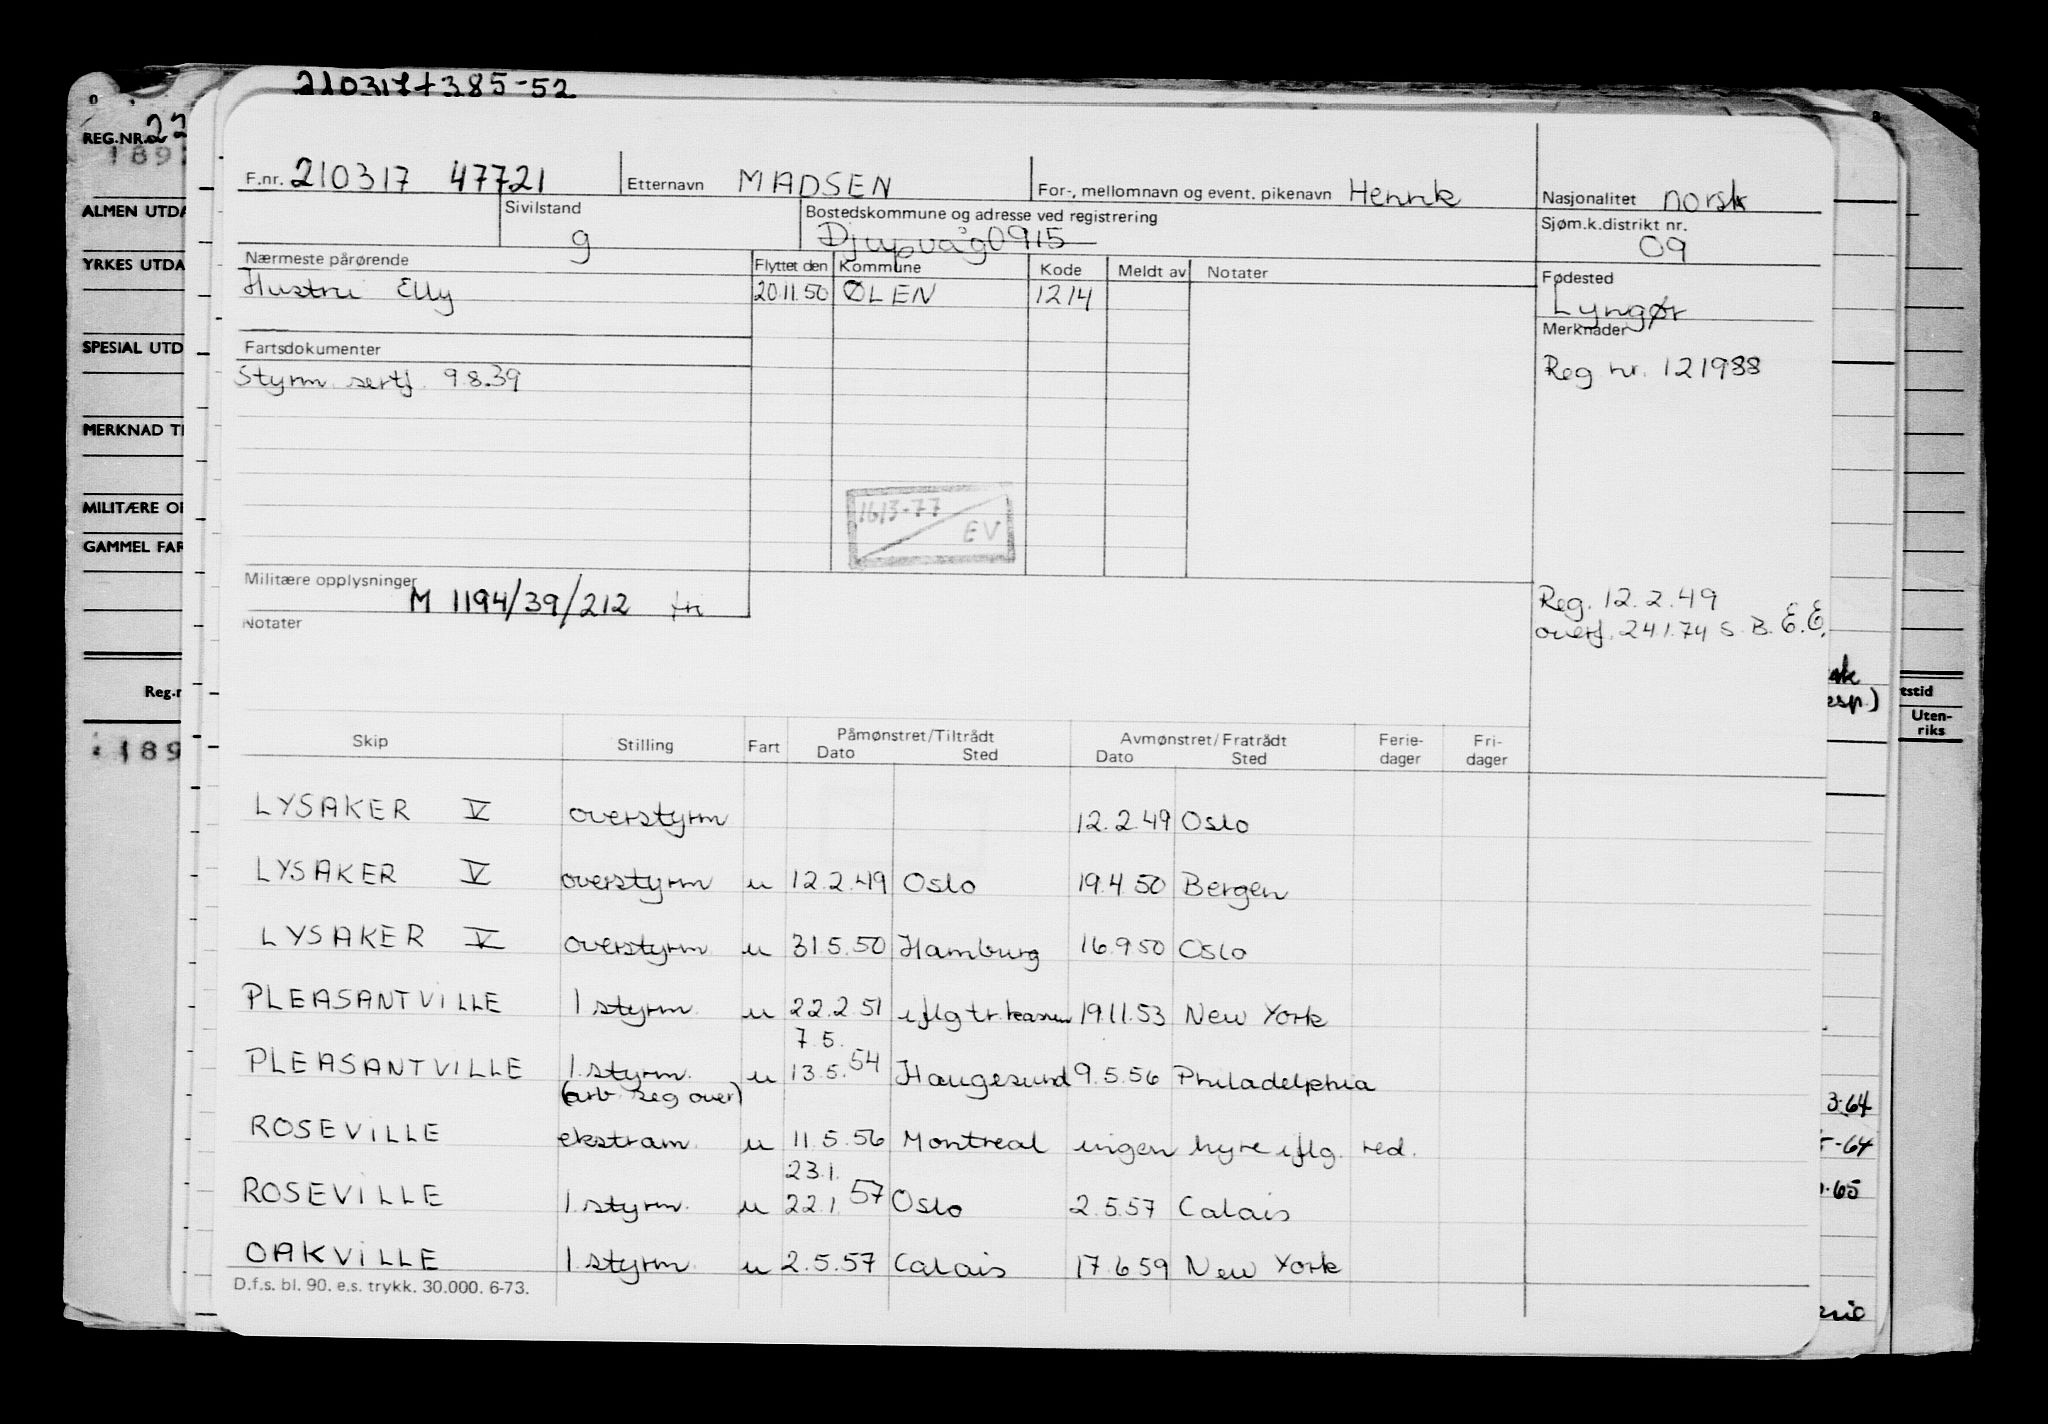 210317+385-52
REG.NR. 22
189
ALMEN UTDA
YRKES UTDA
SPESIAL UTD
MERKNAD TI
MILITÆRE OP
GAMMEL FAR
Reg.n
189
F.nr. 210317 47721 Etternavn MADSEN For-, mellomnavn og event. pikenavn Henrik Nasjonalitet norsk
Sivilstand g Bostedskommune og adresse ved registrering Djupvåg 0915 Sjøm.k.distrikt nr. 09
Nærmeste pårørende Flyttet den Kommune Kode Meldt av Notater Fødested
Hustru Elly 20.11.50 ØLEN 1214 Lyngør
Merknader
Fartsdokumenter
Styrm. sertf. 9.8.39 Reg nr. 121988
1613-77
EV
Militære opplysninger M 1194/39/212
Notater
Reg. 12.2.49
overf. 24.1.74 S.B. E.E.
Skip Stilling Fart Påmønstret/Tiltrådt Avmønstret/Fratrådt Ferie- Fri-
Dato Sted Dato Sted dager dager
LYSAKER V overstyrm 12.2.49 Oslo
LYSAKER V overstyrm u 12.2.49 Oslo 19.4.50 Bergen
LYSAKER V overstyrm u 31.5.50 Hamburg 16.9.50 Oslo
PLEASANTVILLE 1 styrm. u 22.2.51 iflg tr.kassen 19.11.53 New York
7.5.
PLEASANTVILLE 1. styrm. u 13.5.54 Haugesund 9.5.56 Philadelphia
(arb. seg over)
ROSEVILLE ekstram. u 11.5.56 Montreal ingen hyre iflg. red.
23.1.
ROSEVILLE 1. styrm. u 22.1.57 Oslo 2.5.57 Calais
OAKVILLE 1. styrm. u 2.5.57 Calais 17.6.59 New York
D.f.s. bl. 90. e.s. trykk. 30.000. 6-73.
esp.)
tstid
Uten-
riks
3-64
-64
-65